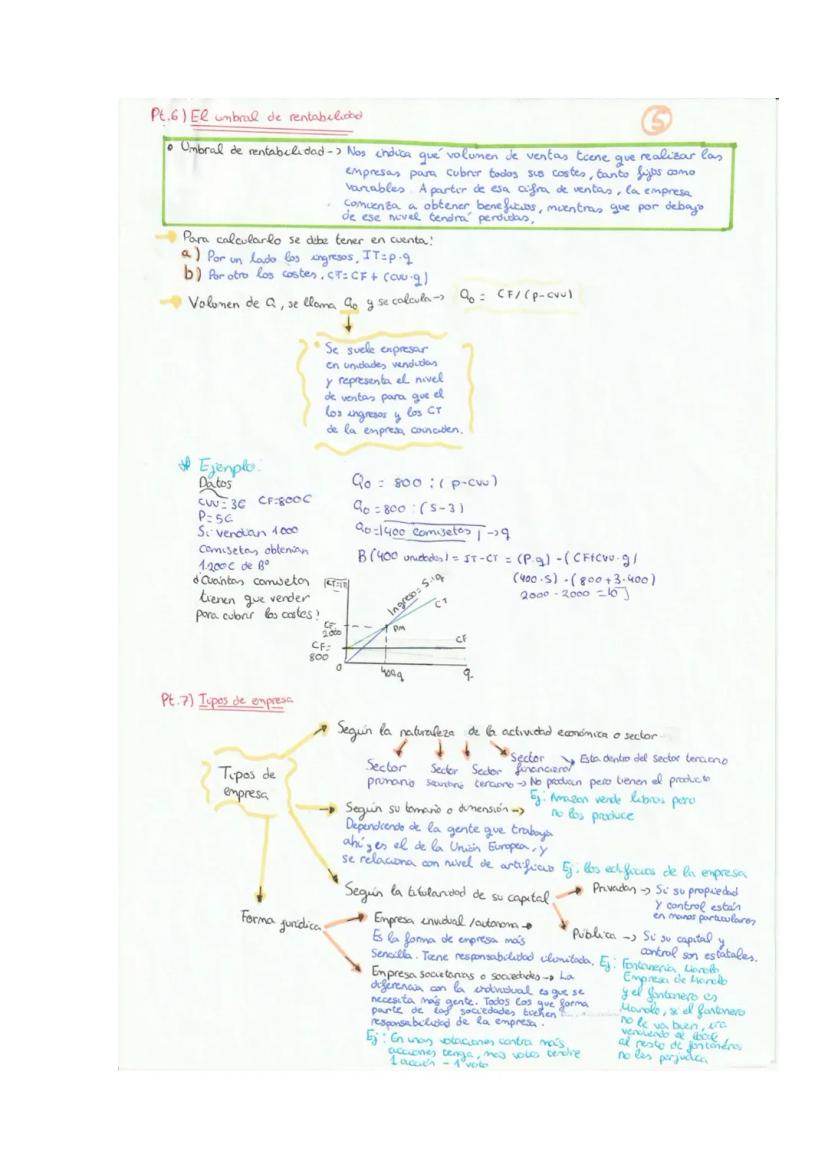 Pt.6) El umbral de rentabilidad
5
• Umbral de rentabilidad -> Nos indica qué volumen de ventas tiene que realizar las
empresas para cubrir todos sus costes, tanto fijos como
variables. A partir de esa cifra de ventas, la empresa
comienza a obtener beneficios, mientras que por debajo
de ese nivel tendrá perdidas.
Para calcularlo se debe tener en cuenta:
a) Por un lado los ingresos, IT=p·q
b) Por otro los costes, CT=CF+(cvu·q)
Volumen de Q, se llama Q₀ y se calcula -> Q₀ = CF/(p-cvu)
• Se suele expresar
en unidades vendidas
y representa el nivel
de ventas para que el
los ingresos y los CT
de la empresa coinciden.
Ejemplo:
Datos
cvu=3€ CF=800€
P=5€
Si vendían 1000
camisetas obtenían
1.200€ de Bº
¿Cuántas camisetas
tienen que vender
para cubrir los costes?
Q₀ = 800 : (p-cvu)
Q₀ = 800 : (5-3)
Q₀ = 400 camisetas -> q
B(400 unidades) = IT-CT = (P·q) - (CF+cvu·q)
(400·5) - (800+3·400)
2000 - 2000 = 0
Ingreso = 5·q
CT
2000
PM
CF
CF=
800
0
400q
q
Pt.7) Tipos de empresa
Tipos de
empresa
Según la naturaleza de la actividad económica o sector
Sector
primario
Sector
secundario
Sector
terciario -> No producen pero tienen el producto
Sector
financiero
Esta dentro del sector terciario
Ej: Amazon vende libros pero
no los produce
Según su tamaño o dimensión ->
Dependiendo de la gente que trabaja
ahí y es el de la Unión Europea, y
se relaciona con nivel de artificio Ej: los edificios de la empresa
Según la titularidad de su capital
Privadas -> Si su propiedad
y control están
en manos particulares
Pública -> Si su capital y
control son estatales.
Forma jurídica
Empresa individual /autónoma ->
Es la forma de empresa más
sencilla. Tiene responsabilidad ilimitada.
Ej: Fontanería Manolo
Empresa de Manolo
y el fontanero es
Manolo, si el fontanero
no le va bien,
al resto de fontaneros
no les perjudica
Empresa societarias o sociedades -> La
diferencia con la individual es que se
necesita más gente. Todos los que forma
parte de las sociedades tienen
responsabilidad de la empresa.
Ej: En unas votaciones contra más
acciones tenga, más votos tendré
1 acción - 1 voto